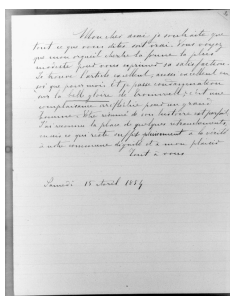 Mon cher ami, je souhaite que
tout ce que vous dites soit vrai. Vous voyez
que mon orgueil cherche la forme la plus
modeste pour vous exprimer sa satisfaction.
Je trouve l'article excellent, aussi excellent en
soi que pour moi et je passe condamnation
sur la belle gloire de Cromwell; c'est une
complaisance
pour un grand
homme. Votre résumé de son histoire est parfait.
J'ai
la place de quelques retranchements,
mais ce que reste suffit pleinement à la vérité
à notre commune dignité et à mon plaisir
Tout à vous
Samedi 18 Avril 1857